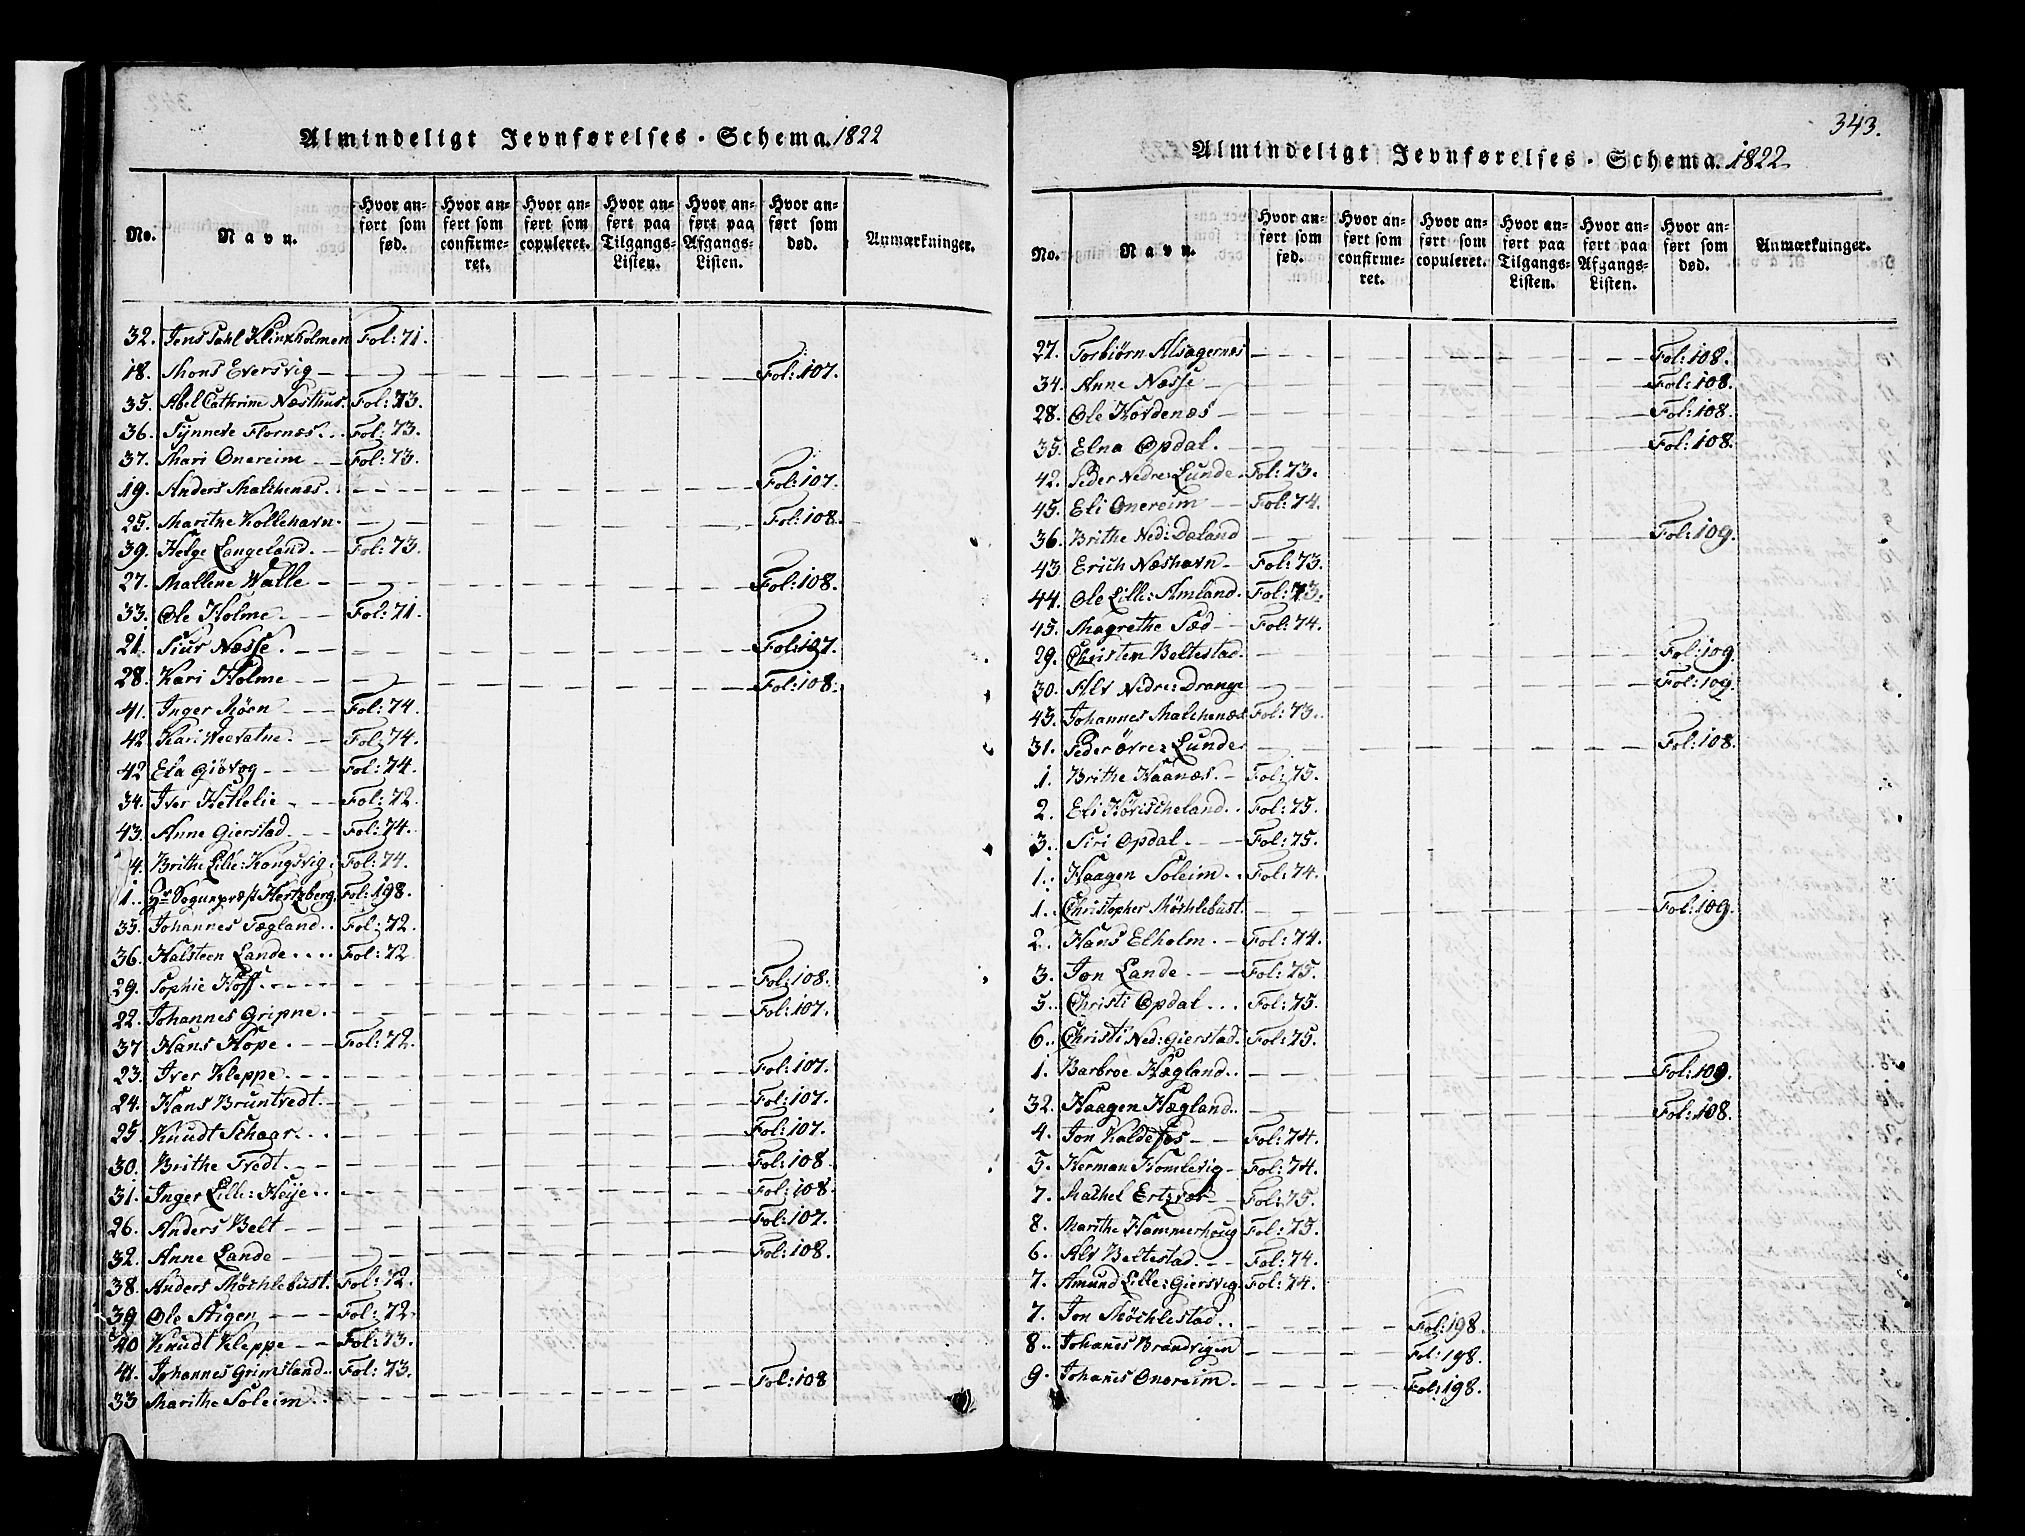 Almindeligt Jevnførelses-Schema. 1822
No.
Navn.
Hvor anført som fød.
Hvor anført som confirmeret.
Hvor anført som copuleret.
Hvor anført paa Tilgangs-Listen.
Hvor anført paa Afgangs-Listen.
Hvor anført som død.
Anmærkninger.
32. Jens Dahl Klinkholmen Fol: 71.
18. Mons Eversvig Fol: 107.
35. Abel Cathrine Næsthus. Fol: 73.
36. Synneve Flornæs Fol: 73.
37. Mari Onereim Fol: 73.
19. Anders Malchenæs Fol: 107.
25. Marithe Kollehavn Fol: 108.
39. Helge Langeland Fol: 73.
27. Mallene Walle Fol: 108.
33. Ole Holme Fol: 71.
21. Siur Næsse Fol: 107.
28. Kari Holme Fol: 108.
41. Inger Møen Fol: 74.
42 Kari Weevatne Fol: 74.
42 Ela Giøvog Fol: 74.
34. Iver Hetlelie Fol: 72.
43. Anne Gierstad Fol: 74.
4. Brithe Lille: Kongsvig Fol: 74.
1. Hr Sognepræst Hertzberg. Fol: 198.
35. Johannes Tægland Fol: 72.
36. Halsteen Lande Fol: 72
29. Sophie Hoff Fol: 108.
22. Johannes Gripne Fol: 107.
37. Hans Hope Fol: 72.
23. Iver Kleppe Fol: 107.
24. Hans Bruntvedt Fol: 107.
25. Knudt Schaar Fol: 107.
30. Brithe Tvedt Fol: 108.
31. Inger Lille: Høije Fol: 108.
26. Anders Belt Fol: 107.
32. Anne Lande Fol: 108.
38. Anders Møchlebust. Fol: 72.
39. Ole Aigen Fol: 72.
40 Knudt Kleppe Fol: 73.
41. Johannes Grimsland Fol: 73.
33 Marithe Soleim Fol: 108
343.
Almindeligt Jevnførelses-Schema. 1822
No.
Navn.
Hvor anført som fød.
Hvor anført som confirmeret.
Hvor anført som copuleret.
Hvor anført paa Tilgangs-Listen.
Hvor anført paa Afgangs-Listen.
Hvor anført som død.
Anmærkninger.
27. Torbiørn Alsagernæs Fol: 108.
34. Anne Næsse Fol: 108.
28. Ole Hovdenæs Fol: 108.
35. Elna Opdal Fol: 108.
42. Peder Nedre: Lunde Fol: 73.
45. Eli Onereim Fol: 74.
36. Brithe Ned: Dæland Fol: 109.
43. Erich Næshavn Fol: 73.
44. Ole Lille: Amland Fol: 73.
45. Magrethe Sæd Fol: 74.
29. Christen Beltestad Fol: 109.
30. Alv Nedre: Drange Fol: 109.
45. Johannes Malchenæs Fol: 73.
31. Peder øvre: Lunde Fol: 108.
1. Brithe Haanæs Fol: 75.
2. Eli Høvischeland Fol: 75.
3. Siri Opdal Fol: 75.
1. Haagen Soleim Fol: 74.
1. Christopher Møchlebust. Fol: 109.
2. Hans Elholm Fol: 74.
3. Jon Lande Fol: 75.
5. Christi Opdal Fol: 75.
6. Christi Ned: Gierstad. Fol: 75.
1. Barbroe Hægland Fol: 109.
32. Haagen Hægland Fol: 108.
4. Jon Kaldefos Fol: 74.
5. Herman Homlevig Fol: 74.
7. Rachel Ertzvær Fol: 75.
8. Marithe Hammerhoug Fol: 75.
6. Alv Beltestad Fol: 74.
7. Amund Lille: Giersvig. Fol: 74.
7. Jon Møchlestad Fol: 198.
8. Johanes Brandvigen Fol: 198.
9. Johanes Onereim Fol: 198.